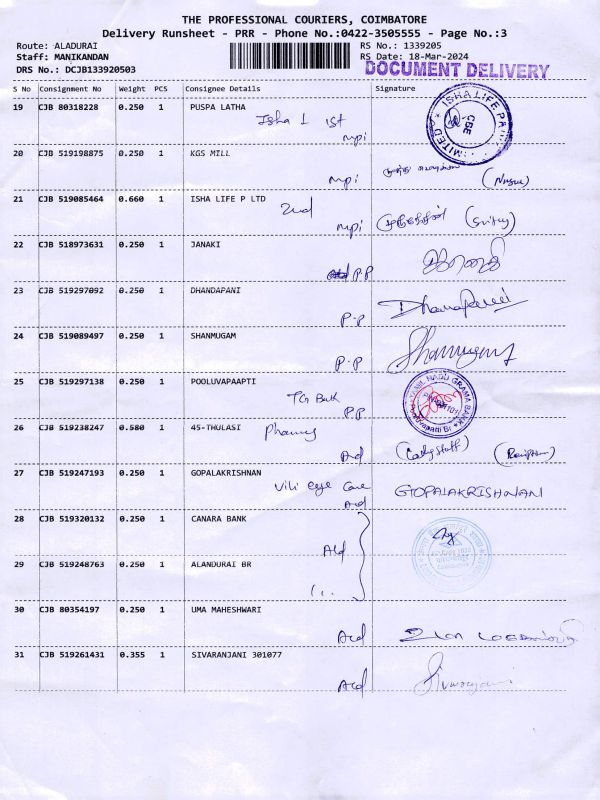 THE PROFESSIONAL COURIERS, COIMBATORE
Delivery Runsheet - PRR - Phone No.:0422-3505555 - Page No.:3
Route: ALADURAI RS No.: 1339205
Staff: MANIKANDAN RS Date: 18-Mar-2024
DRS No.: DCJB133920503 DOCUMENT DELIVERY
S No Consignment No Weight PCS Consignee Details Signature
19 CJB 80318228 0.250 1 PUSPA LATHA
Isha L 1st
mpi
ISHA LIFE P. LIMITED CBE
20 CJB 519198875 0.250 1 KGS MILL
mpi
21 CJB 519085464 0.660 1 ISHA LIFE P LTD
2nd
mpi
22 CJB 518973631 0.250 1 JANAKI
P.P
23 CJB 519297092 0.250 1 DHANDAPANI
P.P Dhanapani
24 CJB 519089497 0.250 1 SHANMUGAM
P.P Shanmugam
25 CJB 519297138 0.250 1 POOLUVAPAAPTI
TG Bank
P.P
TAMIL NADU GRAMA BANK
26 CJB 519238247 0.580 1 45-THULASI
Ald
27 CJB 519247193 0.250 1 GOPALAKRISHNAN
Vili eye Care
Ald GOPALAKRISHNAN
28 CJB 519320132 0.250 1 CANARA BANK
Ald
29 CJB 519248763 0.250 1 ALANDURAI BR
30 CJB 80354197 0.250 1 UMA MAHESHWARI
Ald உமா மகேஸ்வரி
31 CJB 519261431 0.355 1 SIVARANJANI 301077
Ald Sivaranjani